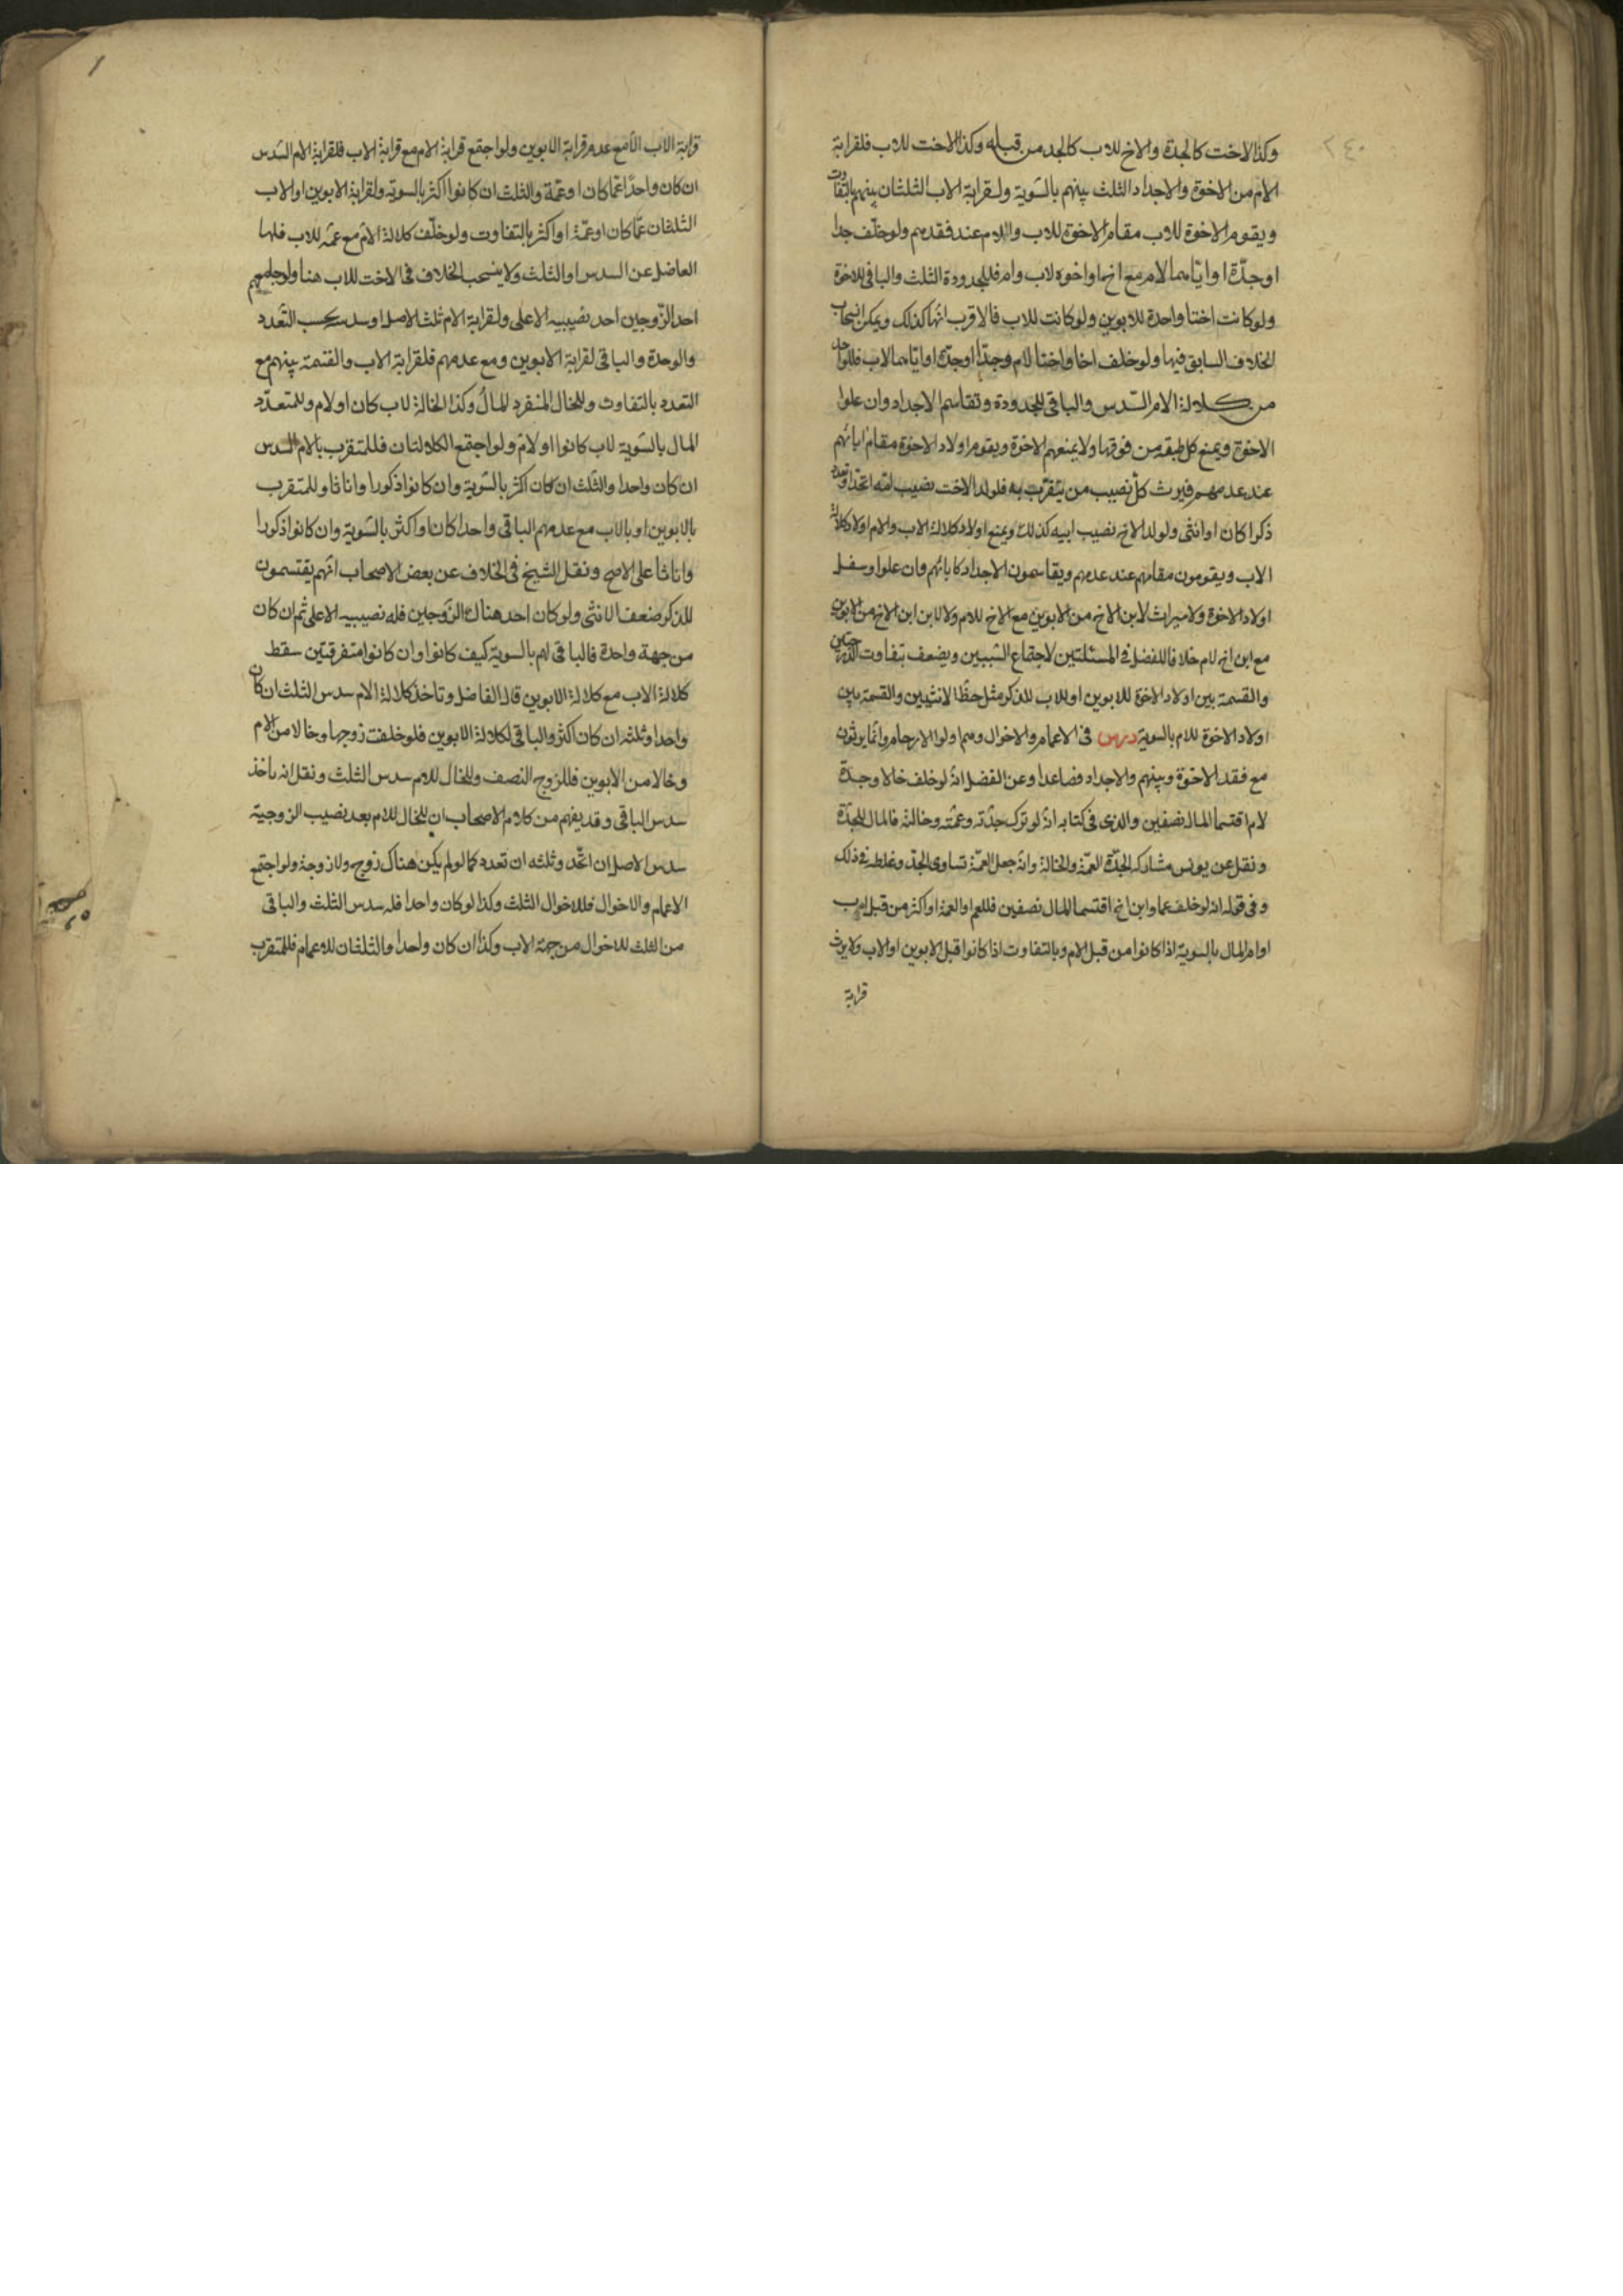 ٢٤٠
وكذا الاخت كالجدة والاخ للاب كالجد من قبله وكذا الاخت للاب فلقرابة
الام من الاخوة والاجداد الثلث بينهم بالسوية ولقرابة الاب الثلثان بينهم بالتفاوت
ويقوم الاخوة للاب مقام الاخوة للاب والام عند فقدهم ولو خلف جدا
او جدة او اياهما لام مع اخ او اخوة لاب وام فللجدودة الثلث والباقى للاخوة
ولو كانت اختا واحدة للابوين ولو كانت للاب فالاقرب انها كذلك ويمكن انسحاب
الخلاف السابق فيها ولو خلف اخا او اختا لام وجدا او جدة او اياهما لاب فللواحد
من كلالة الام السدس والباقى للجدودة وتقاسم الاجداد وان علوا
الاخوة ويمنع كل طبقة من فوقها ولا يمنعهم الاخوة ويقوم اولاد الاخوة مقام ابائهم
عند عدمهم فيرث كل نصيب من يتقرب به فلولد الاخت نصيب امه اتحد او تعدد
ذكرا كان او انثى ولولد الاخ نصيب ابيه كذلك ويمنع اولاد كلالة الاب والام اولاد كلالة
الاب ويقومون مقامهم عند عدمهم ويقاسمون الاجداد كابائهم وان علوا وسفل
اولاد الاخوة ولا ميراث لابن الاخ من الابوين مع الاخ للام ولا لابن ابن الاخ من الابوين
مع ابن اخ لام خلافا للفضل فى المسئلتين لاجتماع السببين ويضعف بتفاوت الدرجتين
والقسمة بين اولاد الاخوة للابوين او للاب للذكر مثل حظ الانثيين والقسمة بين
اولاد الاخوة للام بالسوية درس فى الاعمام والاخوال وهم اولوا الارحام وانما يرثون
مع فقد الاخوة وبنيهم والاجداد فصاعدا وعن الفضل انه لو خلف خالا وجدة
لام اقتسما المال نصفين والذى فى كتابه انه لو ترك جدته وعمته وخالته فالمال للجدة
ونقل عن يونس مشاركة الجدة العمة والخالة وانه جعل العمة تساوى الجد وغلطه فى ذلك
وفى قوله انه لو خلف عما وابن اخ اقتسما المال نصفين فللعم او العمة او اكثر من قبل اب
او ام المال بالسوية اذا كانوا من قبل الام وبالتفاوت اذا كانوا قبل الابوين او الاب ولا يرث
قرابة
قرابة الاب الا مع عدم قرابة الابوين ولو اجتمع قرابة الام مع قرابة الاب فلقرابة الام السدس
ان كان واحدا عما كان او عمة والثلث ان كانوا اكثر بالسوية ولقرابة الابوين او الاب
الثلثان عما كان او عمة او اكثر بالتفاوت ولو خلف كلالة الام مع عمة للاب فلها
الفاضل عن السدس او الثلث ولا ينسحب الخلاف فى الاخت للاب هنا ولو جامعهم
احد الزوجين اخذ نصيبه الاعلى ولقرابة الام ثلث الاصل او سدسه بحسب التعدد
والوحدة والباقى لقرابة الابوين ومع عدمهم فلقرابة الاب والقسمة بينهم مع
التعدد بالتفاوت وللخال المنفرد المال وكذا الخالة لاب كان او لام وللمتعدد
المال بالسوية لاب كانوا او لام ولو اجتمع الكلالتان فللمتقرب بالام السدس
ان كان واحدا والثلث ان كان اكثر بالسوية وان كانوا ذكورا واناثا وللمتقرب
بالابوين او بالاب مع عدمهم الباقى واحدا كان او اكثر بالسوية وان كانوا ذكورا
واناثا على الاصح ونقل الشيخ فى الخلاف عن بعض الاصحاب انهم يقتسمون
للذكر ضعف الانثى ولو كان احد هناك الزوجين فله نصيبه الاعلى ثم ان كان
من جهة واحدة فالباقى لهم بالسوية كيف كانوا وان كانوا متفرقين سقط
كلالة الاب مع كلالة الابوين قال الفاضل وتاخذ كلالة الام سدس الثلث ان كان
واحدا وثلثه ان كان اكثر والباقى لكلالة الابوين فلو خلفت زوجها وخالا من الام
وخالا من الابوين فللزوج النصف وللخال للام سدس الثلث ونقل انه ياخذ
سدس الباقى وقد يفهم من كلام الاصحاب ان للخال للام بعد نصيب الزوجية
سدس الاصل ان اتحد وثلثه ان تعدد كما لو لم يكن هناك زوج ولا زوجة ولو اجتمع
الاعمام والاخوال فللاخوال الثلث وكذا لو كان واحدا فله سدس الثلث والباقى
من الثلث للاخوال من جهة الاب وكذا ان كان واحدا والثلثان للاعمام فللمتقرب